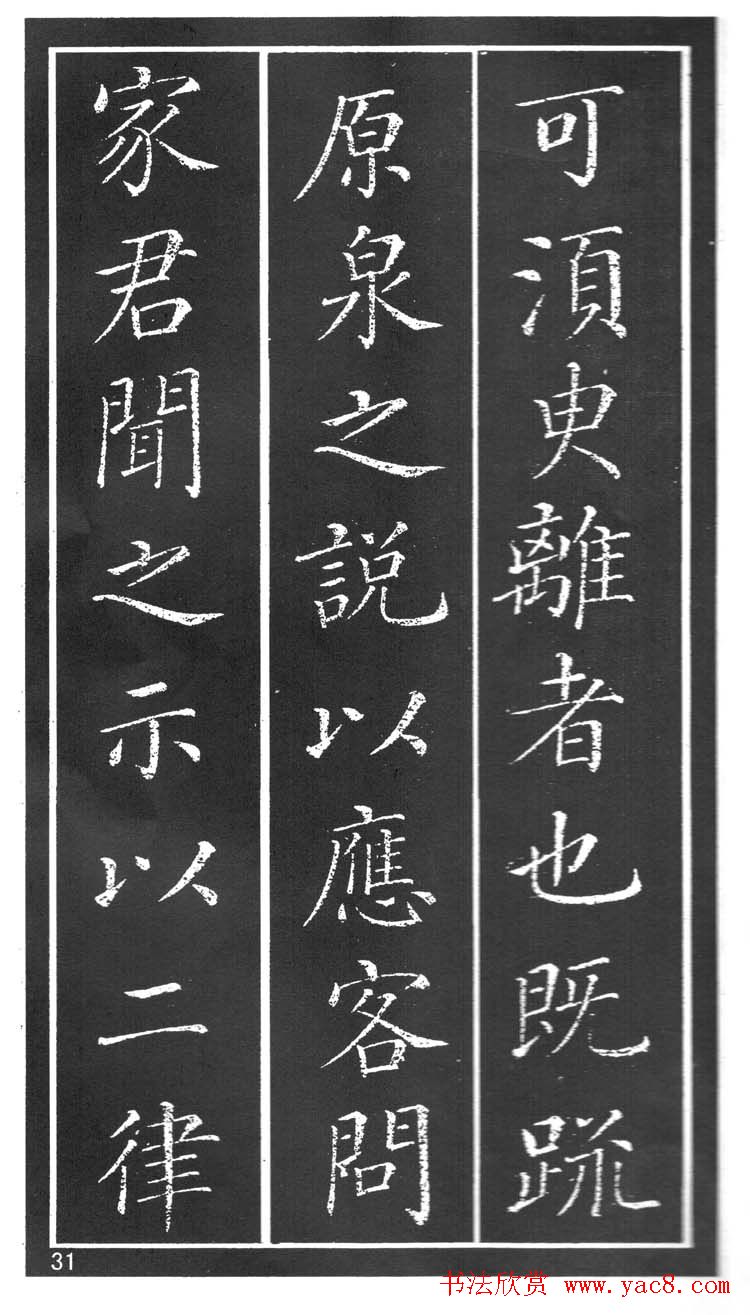 可須臾離者也既疏
原泉之說以應客問
家君聞之示以二律
31
书法欣赏 www.yac8.com